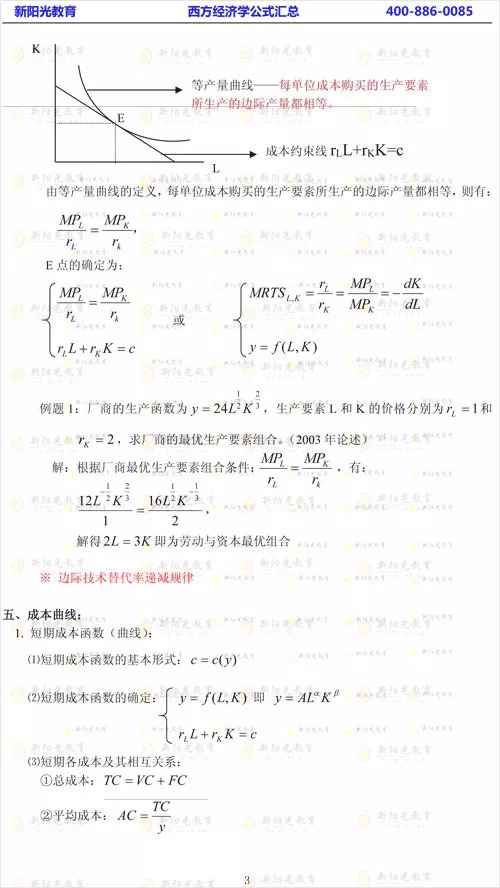 新阳光教育 西方经济学公式汇总 400-886-0085
K
等产量曲线——每单位成本购买的生产要素
所生产的边际产量都相等。
E
成本约束线 r_L L+r_K K=c
L
由等产量曲线的定义，每单位成本购买的生产要素所生产的边际产量都相等，则有：
MP_L/r_L = MP_K/r_k，
E 点的确定为：
MP_L/r_L = MP_K/r_k 或 MRTS_{L,K} = r_L/r_K = MP_L/MP_K = -dK/dL
r_L L + r_K K = c y = f(L,K)
例题 1：厂商的生产函数为 y = 24L^{1/2}K^{2/3}，生产要素 L 和 K 的价格分别为 r_L = 1 和
r_K = 2，求厂商的最优生产要素组合。（2003 年论述）
解：根据厂商最优生产要素组合条件：MP_L/r_L = MP_K/r_k，有：
12L^{-1/2}K^{2/3}/1 = 16L^{1/2}K^{-1/3}/2，
解得 2L = 3K 即为劳动与资本最优组合
※ 边际技术替代率递减规律
五、成本曲线：
1. 短期成本函数（曲线）：
⑴短期成本函数的基本形式：c = c(y)
⑵短期成本函数的确定： y = f(L,K) 即 y = AL^α K^β
r_L L + r_K K = c
⑶短期各成本及其相互关系：
①总成本：TC = VC + FC
②平均成本：AC = TC/y
3